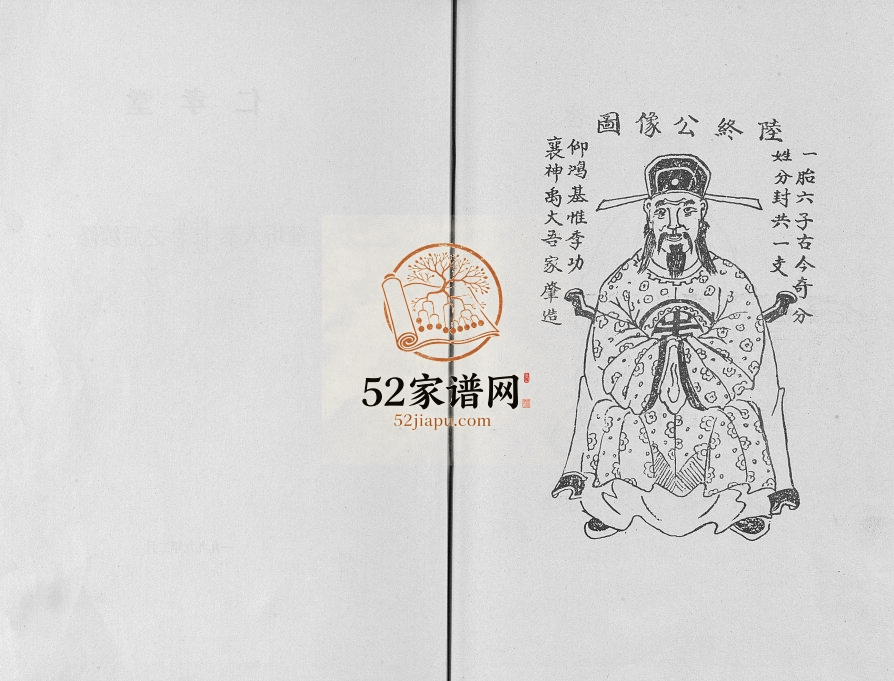 陸終公像圖
一胎六子古今奇分
姓分封共一支
仰鴻基惟季功
襄神禹大吾家肇造
仁孝堂
52家谱网
52jiapu.com